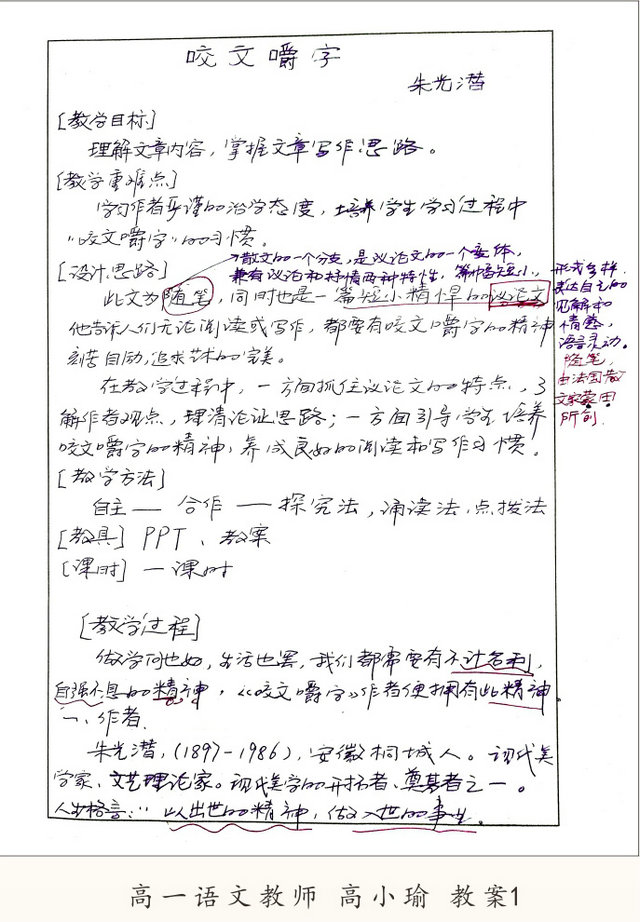 咬文嚼字
朱光潜
[教学目标]
理解文章内容，掌握文章写作思路。
[教学重难点]
学习作者严谨的治学态度，培养学生学习过程中
"咬文嚼字"的习惯。
散文的一个分支，是议论文的一个变体，
兼有议论和抒情两种特性，篇幅短小，
形式多样，
表达自己的
见解和
情感，
语言灵动。
随笔，
由法国散
文家蒙田
所创.
[设计思路]
此文为随笔，同时也是一篇短小精悍的议论文
他告诉人们无论阅读或写作，都要有咬文嚼字的精神
刻苦自励，追求艺术的完美。
在教学过程中，一方面抓住议论文的特点，了
解作者观点，理清论证思路；一方面引导学生培养
咬文嚼字的精神，养成良好的阅读和写作习惯。
[教学方法]
自主一合作一探究法，诵读法，点拨法
[教具] PPT、教案
[课时] 一课时
[教学过程]
做学问也好，生活也罢，我们都需要有不计名利，
自强不息的精神，《咬文嚼字》作者便拥有此精神
一、作者.
朱光潜，(1897-1986)，安徽桐城人。现代美
学家、文艺理论家。现代美学的开拓者、奠基者之一。
人生格言："以出世的精神，做入世的事业。
高一语文教师 高小瑜 教案1